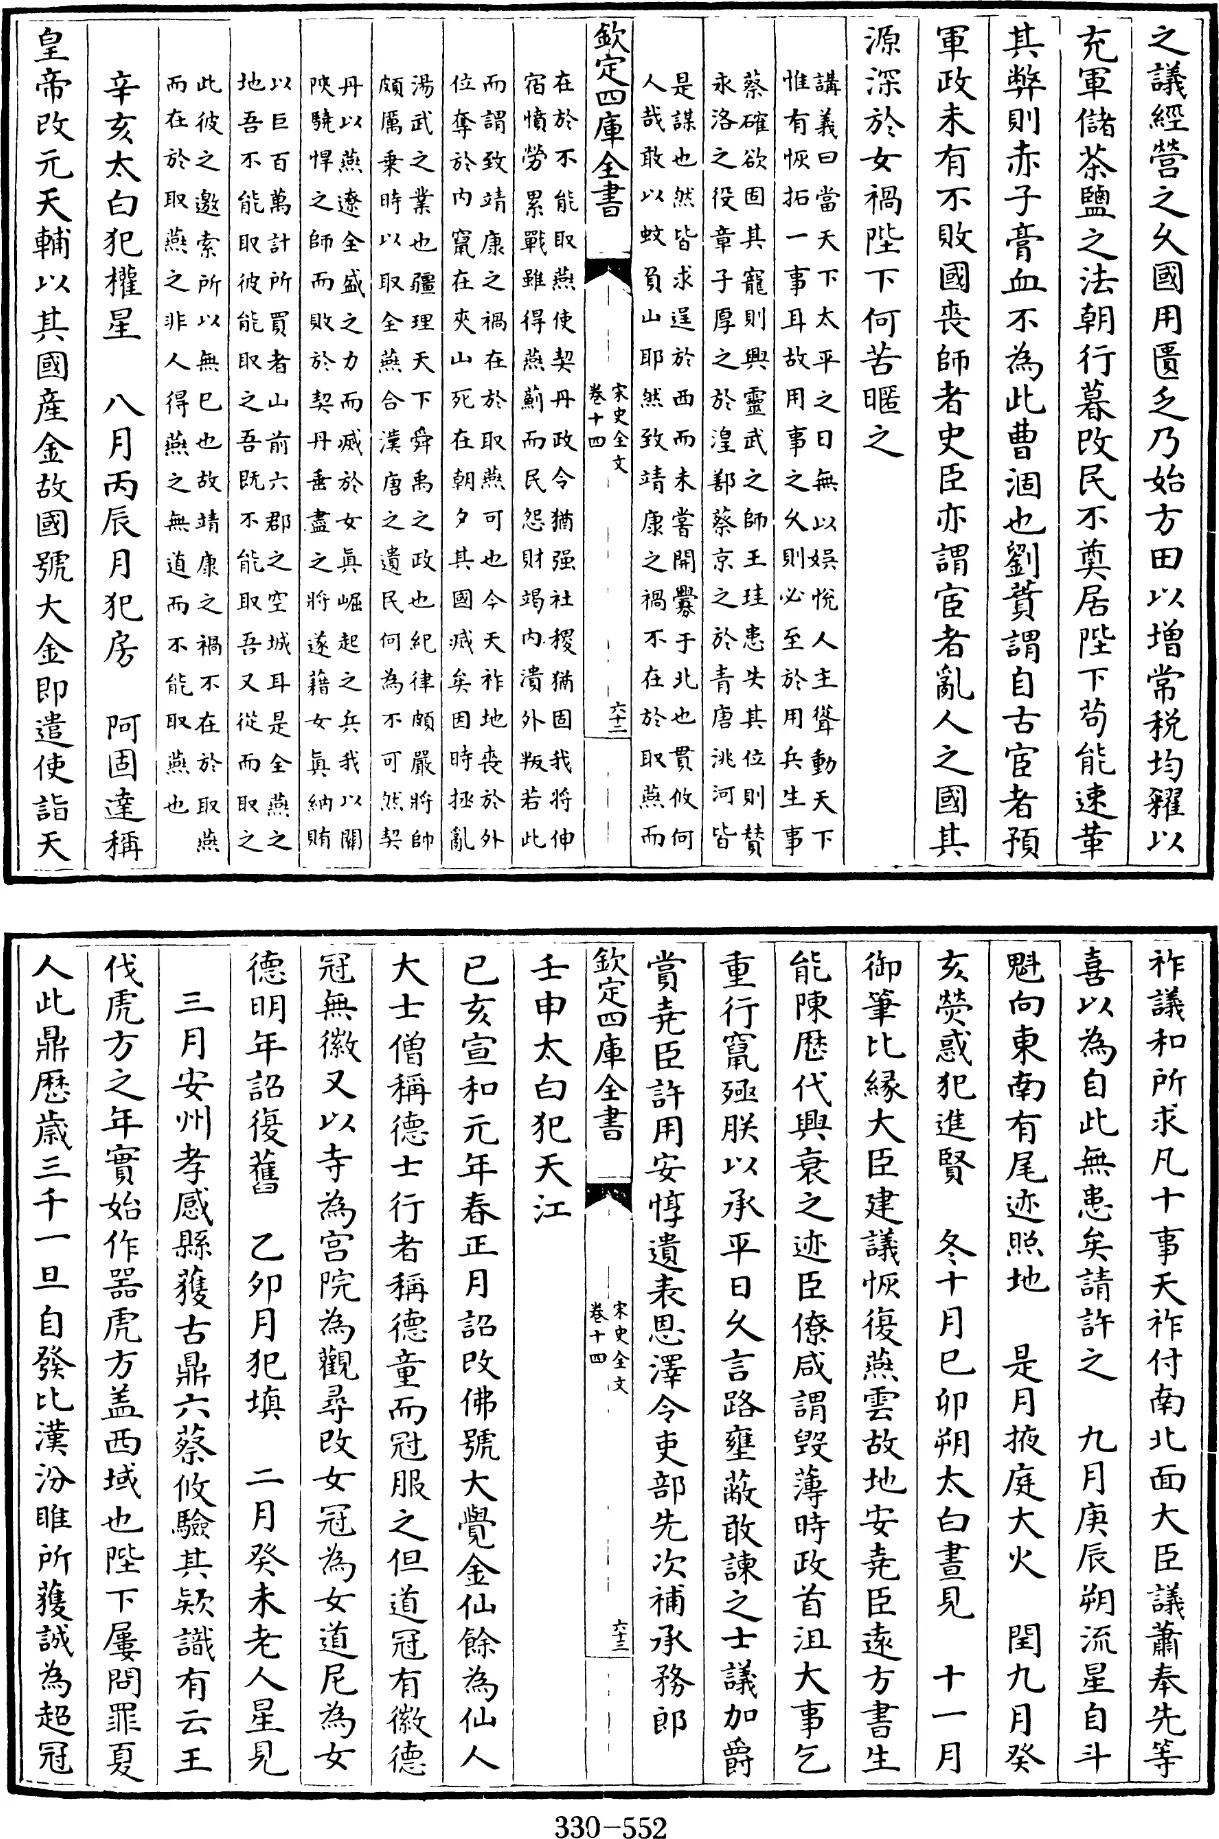 之議經營之久國用匱乏乃始方田以增常税均糴以
充軍儲茶鹽之法朝行暮改民不奠居陛下苟能速革
其弊則赤子膏血不為此曹涸也劉蕡謂自古宦者預
軍政未有不敗國喪師者史臣亦謂宦者亂人之國其
源深於女禍陛下何苦暱之
講義曰當天下太平之日無以娯悅人主聳動天下
惟有恢拓一事耳故用事之久則必至於用兵生事
蔡確欲固其寵則興靈武之師王珪患失其位則賛
永洛之役章子厚之於湟鄯蔡京之於青唐洮河皆
是謀也然皆求逞於西而未嘗開釁于北也貫攸何
人哉敢以蚊負山耶然致靖康之禍不在於取燕而
欽定四庫全書
宋史全文
卷十四
六十二
在於不能取燕使契丹政令猶强社稷猶固我將伸
宿憤勞累戰雖得燕薊而民怨財竭内潰外叛若此
而謂致靖康之禍在於取燕可也今天祚地喪於外
位奪於内竄在夾山死在朝夕其國滅矣因時拯亂
湯武之業也疆理天下舜禹之政也紀律頗嚴將帥
頗厲乗時以取全燕合漢唐之遺民何為不可然契
丹以燕遼全盛之力而滅於女真崛起之兵我以關
陜驍悍之師而敗於契丹垂盡之將遂藉女真納賄
以巨百萬計所買者山前六郡之空城耳是全燕之
地吾不能取彼能取之吾既不能取吾又從而取之
此彼之邀索所以無已也故靖康之禍不在於取燕
而在於取燕之非人得燕之無道而不能取燕也
辛亥太白犯權星 八月丙辰月犯房 阿固達稱
皇帝改元天輔以其國産金故國號大金即遣使詣天
祚議和所求凡十事天祚付南北面大臣議蕭奉先等
喜以為自此無患矣請許之 九月庚辰朔流星自斗
魁向東南有尾迹照地 是月掖庭大火 閏九月癸
亥熒惑犯進賢 冬十月己卯朔太白晝見 十一月
御筆比縁大臣建議恢復燕雲故地安堯臣遠方書生
能陳歴代興衰之迹臣僚咸謂毀薄時政首沮大事乞
重行竄殛朕以承平日久言路壅蔽敢諫之士議加爵
賞堯臣許用安惇遺表恩澤令吏部先次補承務郎
壬申太白犯天江
欽定四庫全書
宋史全文
卷十四
六十三
已亥宣和元年春正月詔改佛號大覺金仙餘為仙人
大士僧稱德士行者稱德童而冠服之但道冠有徽德
冠無徽又以寺為宫院為觀尋改女冠為女道尼為女
德明年詔復舊 乙卯月犯填 二月癸未老人星見
三月安州孝感縣獲古鼎六蔡攸驗其欵識有云王
伐虎方之年實始作噐虎方盖西域也陛下屢問罪夏
人此鼎歴歳三千一旦自發比漢汾睢所獲誠為超冠
330-552